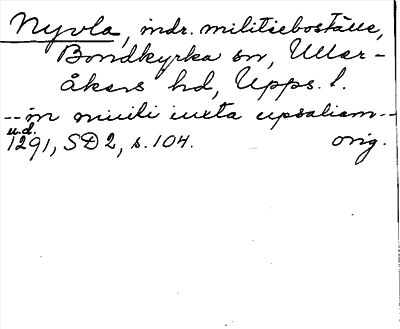 Nyvla, indr. militieboställe,
Bondkyrka sn, Uller-
åkers hd, Upps. l.
--in niuili iuxta upsaliam--
u.d.
1291, SD2, s. 104. orig.